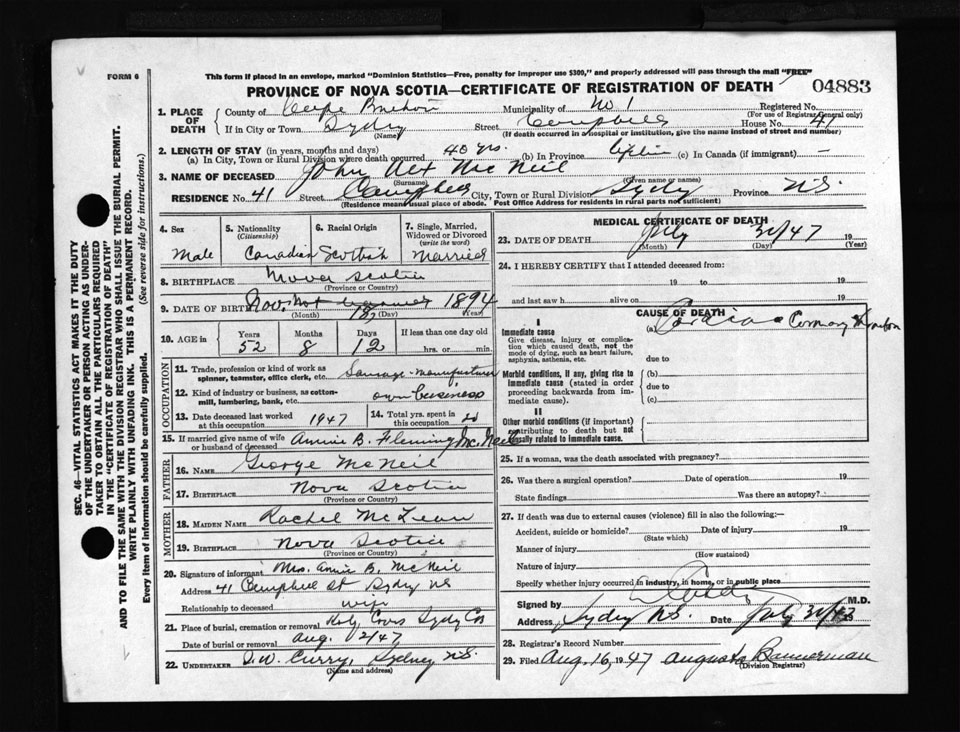 FORM 6
This form if placed in an envelope, marked "Dominion Statistics—Free, penalty for improper use $300," and properly addressed will pass through the mail "FREE"
PROVINCE OF NOVA SCOTIA—CERTIFICATE OF REGISTRATION OF DEATH
04883
1. PLACE OF DEATH
County of Cape Breton Municipality of No 1 Registered No.
(For use of Registrar General only)
If in City or Town Sydney Street Campbell House No. 41
(Name) (If death occurred in a hospital or institution, give the name instead of street and number)
2. LENGTH OF STAY (in years, months and days)
(a) In City, Town or Rural Division where death occurred 40 yrs. (b) In Province (c) In Canada (if immigrant) —
3. NAME OF DECEASED John Alex McNeil
(Surname) (Given name or names)
RESIDENCE No. 41 Street Campbell City, Town or Rural Division Sydney Province N.S.
(Residence means usual place of abode. Post Office Address for residents in rural parts not sufficient)
4. Sex Male
5. Nationality (Citizenship) Canadian
6. Racial Origin Scottish
7. Single, Married, Widowed or Divorced (write the word) Married
8. BIRTHPLACE Nova Scotia
(Province or Country)
9. DATE OF BIRTH Nov. 18 1894
(Month) (Day) (Year)
10. AGE in
Years Months Days If less than one day old
52 8 12 hrs. or min.
OCCUPATION
11. Trade, profession or kind of work as spinner, teamster, office clerk, etc. Sausage-manufacturer
12. Kind of industry or business, as cotton-mill, lumbering, bank, etc. own business
13. Date deceased last worked at this occupation 1947
14. Total yrs. spent in this occupation
15. If married give name of wife or husband of deceased Annie B. Fleming McNeil
FATHER
16. NAME George McNeil
17. BIRTHPLACE Nova Scotia
(Province or Country)
MOTHER
18. MAIDEN NAME Rachel McLean
19. BIRTHPLACE Nova Scotia
(Province or Country)
20. Signature of informant Mrs. Annie B. McNeil
Address 41 Campbell St Sydney NS
Relationship to deceased wife
21. Place of burial, cremation or removal Holy Cross Sydney
Date of burial or removal Aug. 2/47
22. UNDERTAKER D.W. Curry, Sydney N.S.
(Name and address)
MEDICAL CERTIFICATE OF DEATH
23. DATE OF DEATH July 31/47 19
(Month) (Day) (Year)
24. I HEREBY CERTIFY that I attended deceased from:
19 to 19
and last saw h alive on 19
CAUSE OF DEATH
I
Immediate cause
Give disease, injury or complication which caused death, not the mode of dying, such as heart failure, asphyxia, asthenia, etc.
(a) Coronary
due to
Morbid conditions, if any, giving rise to immediate cause (stated in order proceeding backwards from immediate cause).
(b)
due to
(c)
II
Other morbid conditions (if important) contributing to death but not causally related to immediate cause.
25. If a woman, was the death associated with pregnancy?
26. Was there a surgical operation? Date of operation 19
State findings Was there an autopsy?
27. If death was due to external causes (violence) fill in also the following:—
Accident, suicide or homicide? Date of injury 19
(State which)
Manner of injury
(How sustained)
Nature of injury
Specify whether injury occurred in industry, in home, or in public place
Signed by M.D.
Address Sydney N.S. Date July 31/47 19
28. Registrar's Record Number
29. Filed Aug. 16, 1947 Augusta Bannerman
(Division Registrar)
SEC. 46—VITAL STATISTICS ACT MAKES IT THE DUTY
OF THE UNDERTAKER OR PERSON ACTING AS UNDERTAKER TO OBTAIN ALL THE PARTICULARS REQUIRED
IN THE "CERTIFICATE OF REGISTRATION OF DEATH"
AND TO FILE THE SAME WITH THE DIVISION REGISTRAR WHO SHALL ISSUE THE BURIAL PERMIT.
WRITE PLAINLY WITH UNFADING INK. THIS IS A PERMANENT RECORD.
Every item of information should be carefully supplied. (See reverse side for instructions.)